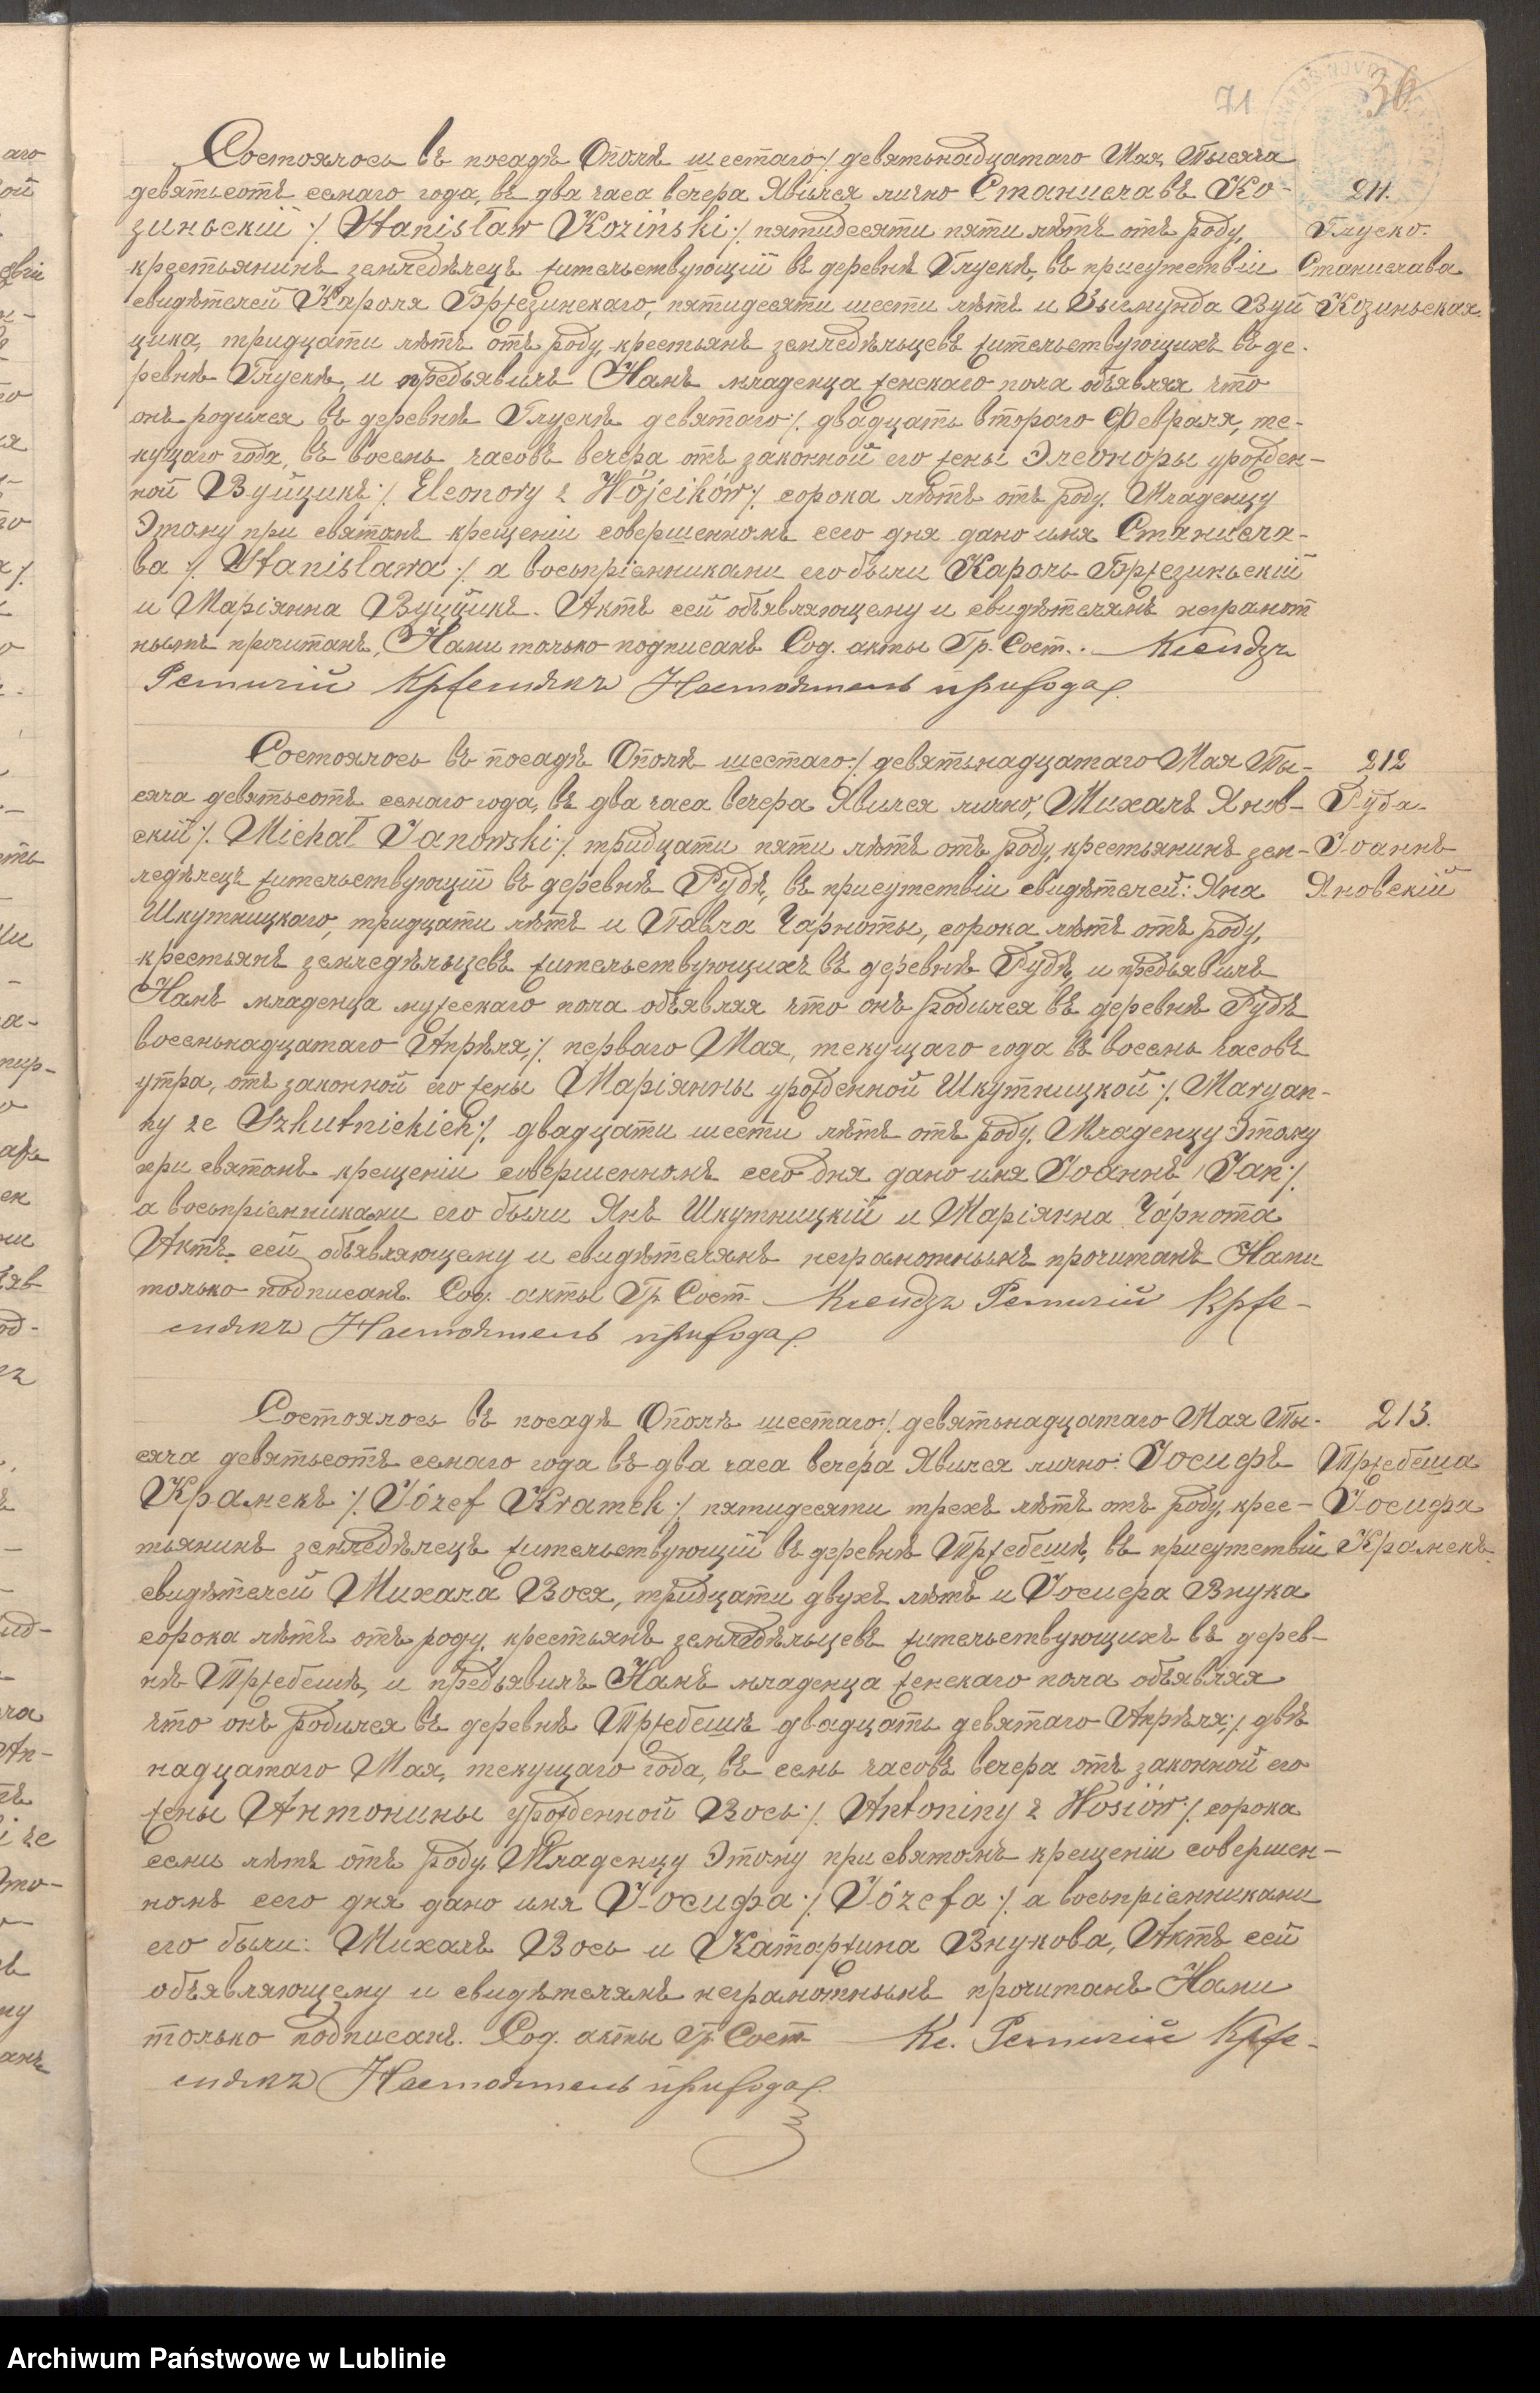 71
36
Состоялось въ посадѣ Ополѣ шестаго ·/. девятьнадцатаго Мая, Тысяча
девятьсотъ семаго года, въ два часа вечера Явился лично Станиславъ Ко-
зиньскій ·/. Stanisław Koziński ·/. пятидесяти пяти лѣтъ отъ роду,
крестьянинъ земледѣлецъ жительствующій въ деревнѣ Глускѣ, въ присутствіи
свидѣтелей Кароля Бржезинскаго, пятидесяти шести лѣтъ и Зыгмунда Вуй
цика, тридцати лѣтъ отъ роду, крестьянъ земледѣльцевъ жительствующихъ въ де-
ревнѣ Глускѣ, и предъявилъ Намъ младенца женскаго пола объявляя что
онъ родился въ деревнѣ Глускѣ девятаго ·/. двадцать втораго Февраля, те-
кущаго года, въ восемь часовъ вечера отъ законной его жены Элеоноры урожден-
ной Вуйцикъ ·/. Eleonory z Wójcików ·/. сорока лѣтъ отъ роду. Младенцу
Этому при святомъ крещеніи совершенномъ сего дня дано имя Станисла-
ва ·/. Stanisława ·/. а воспріемниками его были Кароль Бржезиньскій
и Маріянна Вуйцикъ. Актъ сей объявляющему и свидѣтелямъ неграмот
нымъ прочитанъ, Нами только подписанъ Сод. акты Гр. Сост. Ксендзъ
Ремигій Кржемякъ Настоятель прихода
211.
Глуско.
Станислава
Козиньская.
Состоялось въ посадѣ Ополѣ шестаго ·/. девятьнадцатаго Мая Ты-
сяча девятьсотъ семаго года, въ два часа вечера Явился лично, Михалъ Янов-
скій ·/. Michał Janowski ·/. тридцати пяти лѣтъ отъ роду, крестьянинъ зем-
ледѣлецъ жительствующій въ деревнѣ Рудѣ, въ присутствіи свидѣтелей: Яна
Шкутницкаго, тридцати лѣтъ и Павла Чарноты, сорока лѣтъ отъ роду,
крестьянъ земледѣльцевъ жительствующихъ въ деревнѣ Рудѣ, и предъявилъ
Намъ младенца мужескаго пола объявляя что онъ родился въ деревнѣ Рудѣ
восемьнадцатаго Апрѣля, ·/. перваго Мая, текущаго года въ восемь часовъ
утра, отъ законной его жены Маріянны урожденной Шкутницкой ·/. Maryan-
ny ze Szkutnickich ·/. двадцати шести лѣтъ отъ роду. Младенцу Этому
при святомъ крещеніи совершенномъ сего дня дано имя Іоаннъ ·/ Jan ·/.
а воспріемниками его были Янъ Шкутницкій и Маріянна Чарнота
Актъ сей объявляющему и свидѣтелямъ неграмотнымъ прочитанъ Нами
только подписанъ. Сод. акты Гр. Сост. Ксендзъ Ремигій Крже-
мякъ Настоятель прихода
212
Руда.
Іоаннъ
Яновскій
Состоялось въ посадѣ Ополѣ шестаго ·/. девятьнадцатаго Мая Ты-
сяча девятьсотъ семаго года въ два часа вечера Явился лично: Іосифъ
Крамекъ ·/. Józef Kramek ·/. пятидесяти трехъ лѣтъ отъ роду, крес-
тьянинъ земледѣлецъ жительствующій въ деревнѣ Тржебешѣ, въ присутствіи
свидѣтелей Михала Вося, тридцати двухъ лѣтъ и Іосифа Внука
сорока лѣтъ отъ роду, крестьянъ земледѣльцевъ жительствующихъ въ дерев-
нѣ Тржебешѣ, и предъявилъ Намъ младенца женскаго пола объявляя
что онъ родился въ деревнѣ Тржебешѣ двадцать девятаго Апрѣля, ·/. двѣ
надцатаго Мая, текущаго года, въ семь часовъ вечера отъ законной его
жены Антонины урожденной Вось ·/. Antoniny z Wosiów ·/. сорока
семи лѣтъ отъ роду. Младенцу Этому при святомъ крещеніи совершен-
номъ сего дня дано имя Іосифа ·/. Józefa ·/. а воспріемниками
его были: Михалъ Вось и Катаржина Внукова, Актъ сей
объявляющему и свидѣтелямъ неграмотнымъ прочитанъ Нами
только подписанъ. Сод. акты Гр. Сост. Кс. Ремигій Крже-
мякъ Настоятель прихода
213.
Тржебеша
Іосифа
Крамекъ.
Archiwum Państwowe w Lublinie